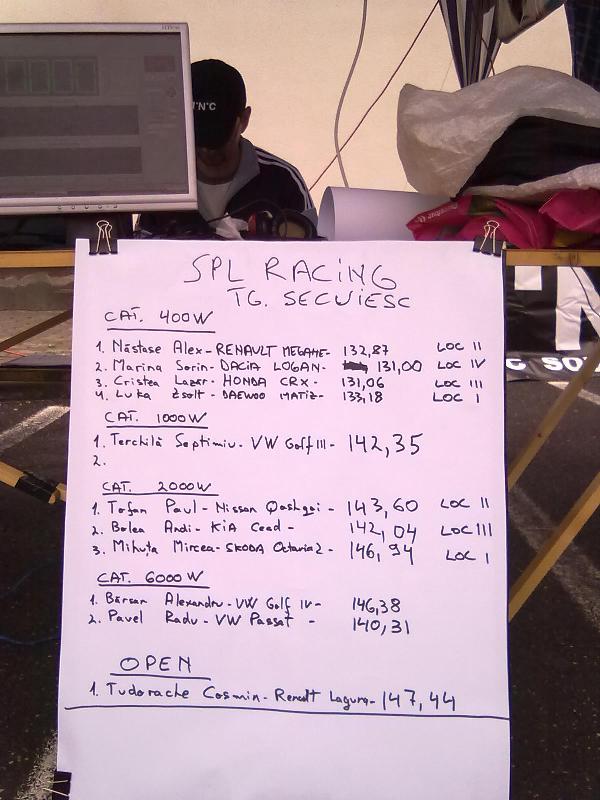 SPL RACING
TG. SECUIESC
CAT. 400W
1. Năstase Alex - RENAULT MEGANE - 132,87 LOC II
2. Marina Sorin - DACIA LOGAN - 131,00 LOC IV
3. Cristea Lazar - HONDA CRX - 131,06 LOC III
4. Luka Zsolt - DAEWOO MATIZ - 133,18 LOC I
CAT. 1000W
1. Terchilă Septimiu - VW Golf III - 142,35
2.
CAT. 2000W
1. Tofan Paul - Nissan Qashqai - 143,60 LOC II
2. Bolea Andi - KIA Ceed - 142,04 LOC III
3. Mihuța Mircea - SKODA Octavia 2 - 146,94 LOC I
CAT. 6000W
1. Bărsan Alexandru - VW Golf IV - 146,38
2. Pavel Radu - VW Passat - 140,31
OPEN
1. Tudorache Cosmin - Renault Laguna - 147,44